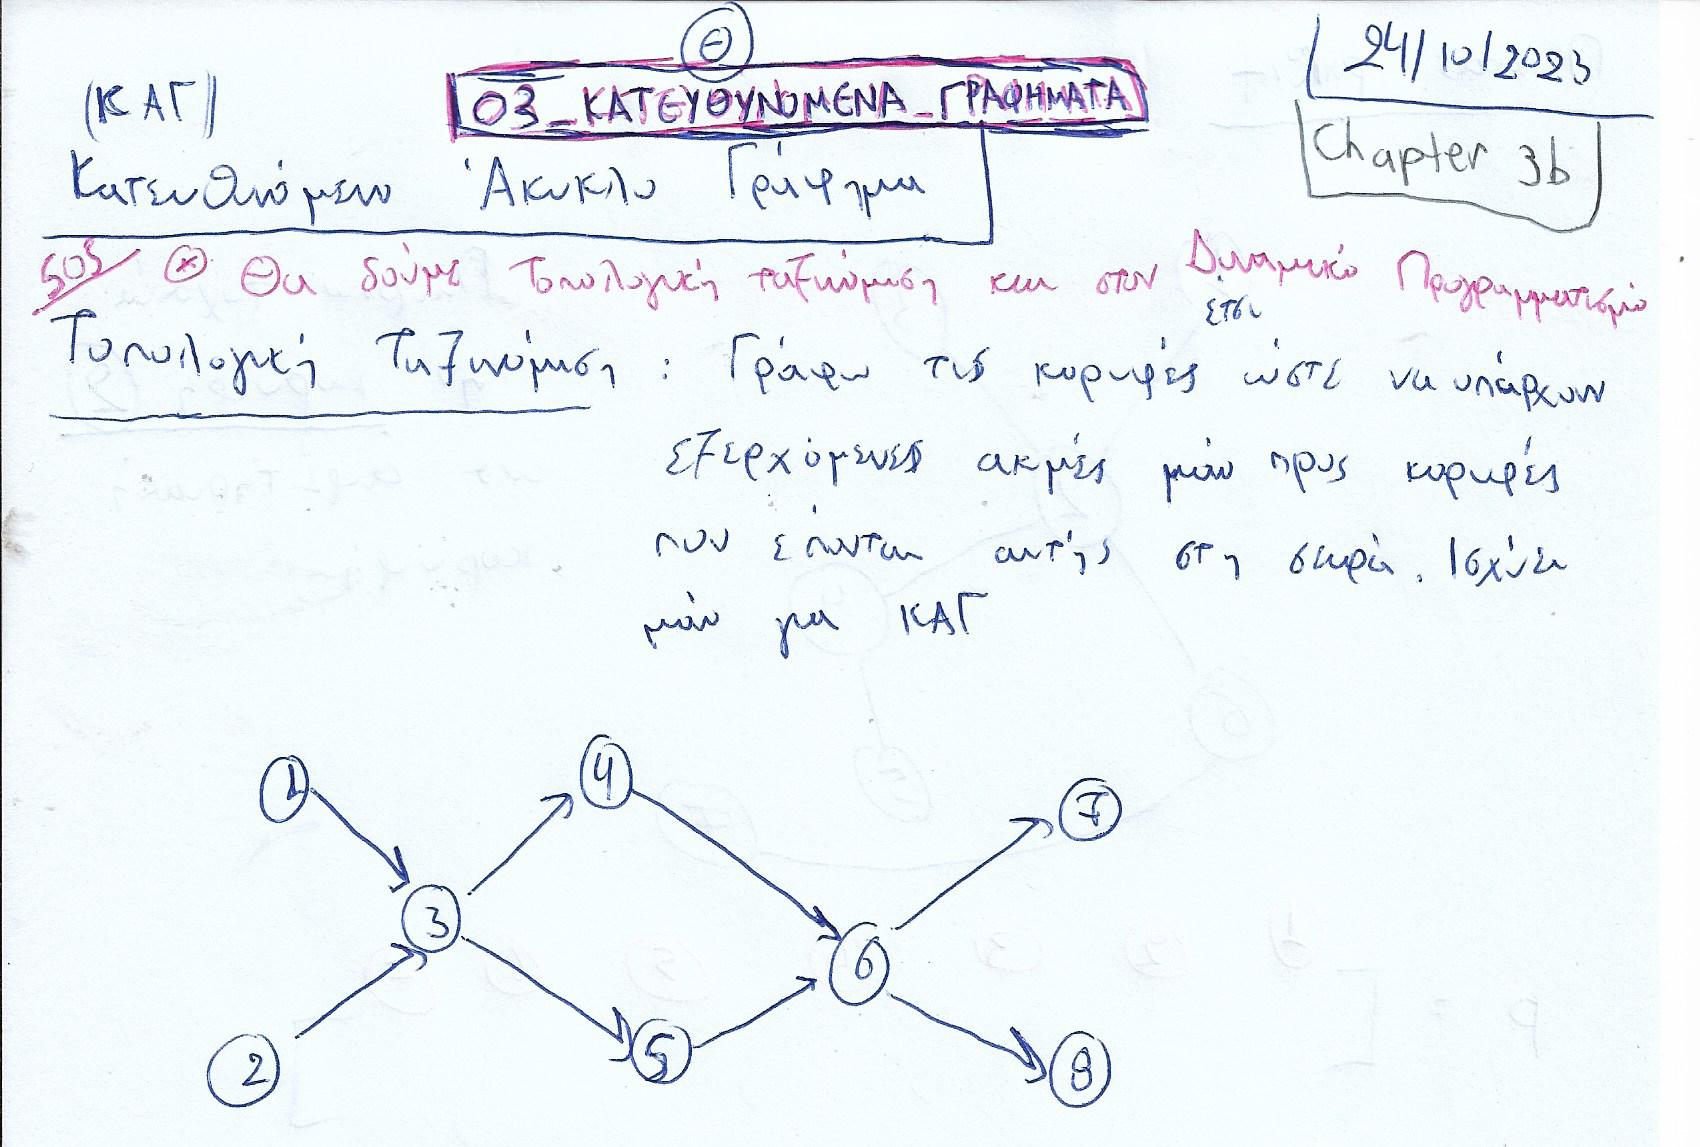 Θ
24/10/2023
(ΚΑΓ)
03_ΚΑΤΕΥΘΥΝΟΜΕΝΑ_ΓΡΑΦΗΜΑΤΑ
Chapter 3b
Κατευθυνόμενο Άκυκλο Γράφημα
SOS * Θα δούμε Τοπολογική ταξινόμηση και στον Δυναμικό Προγραμματισμό
έτσι
Τοπολογική Ταξινόμηση : Γράφω τις κορυφές ώστε να υπάρχουν
εξερχόμενες ακμές μόνο προς κορυφές
που έπονται αυτής στη σειρά. Ισχύει
μόνο για ΚΑΓ
1
4
7
3
6
2
5
8